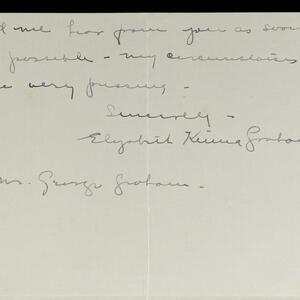 me hear from you as soon
possible - my circumstances
very pressing -
Sincerely -
Elizabeth Graham
Mrs. George Graham -